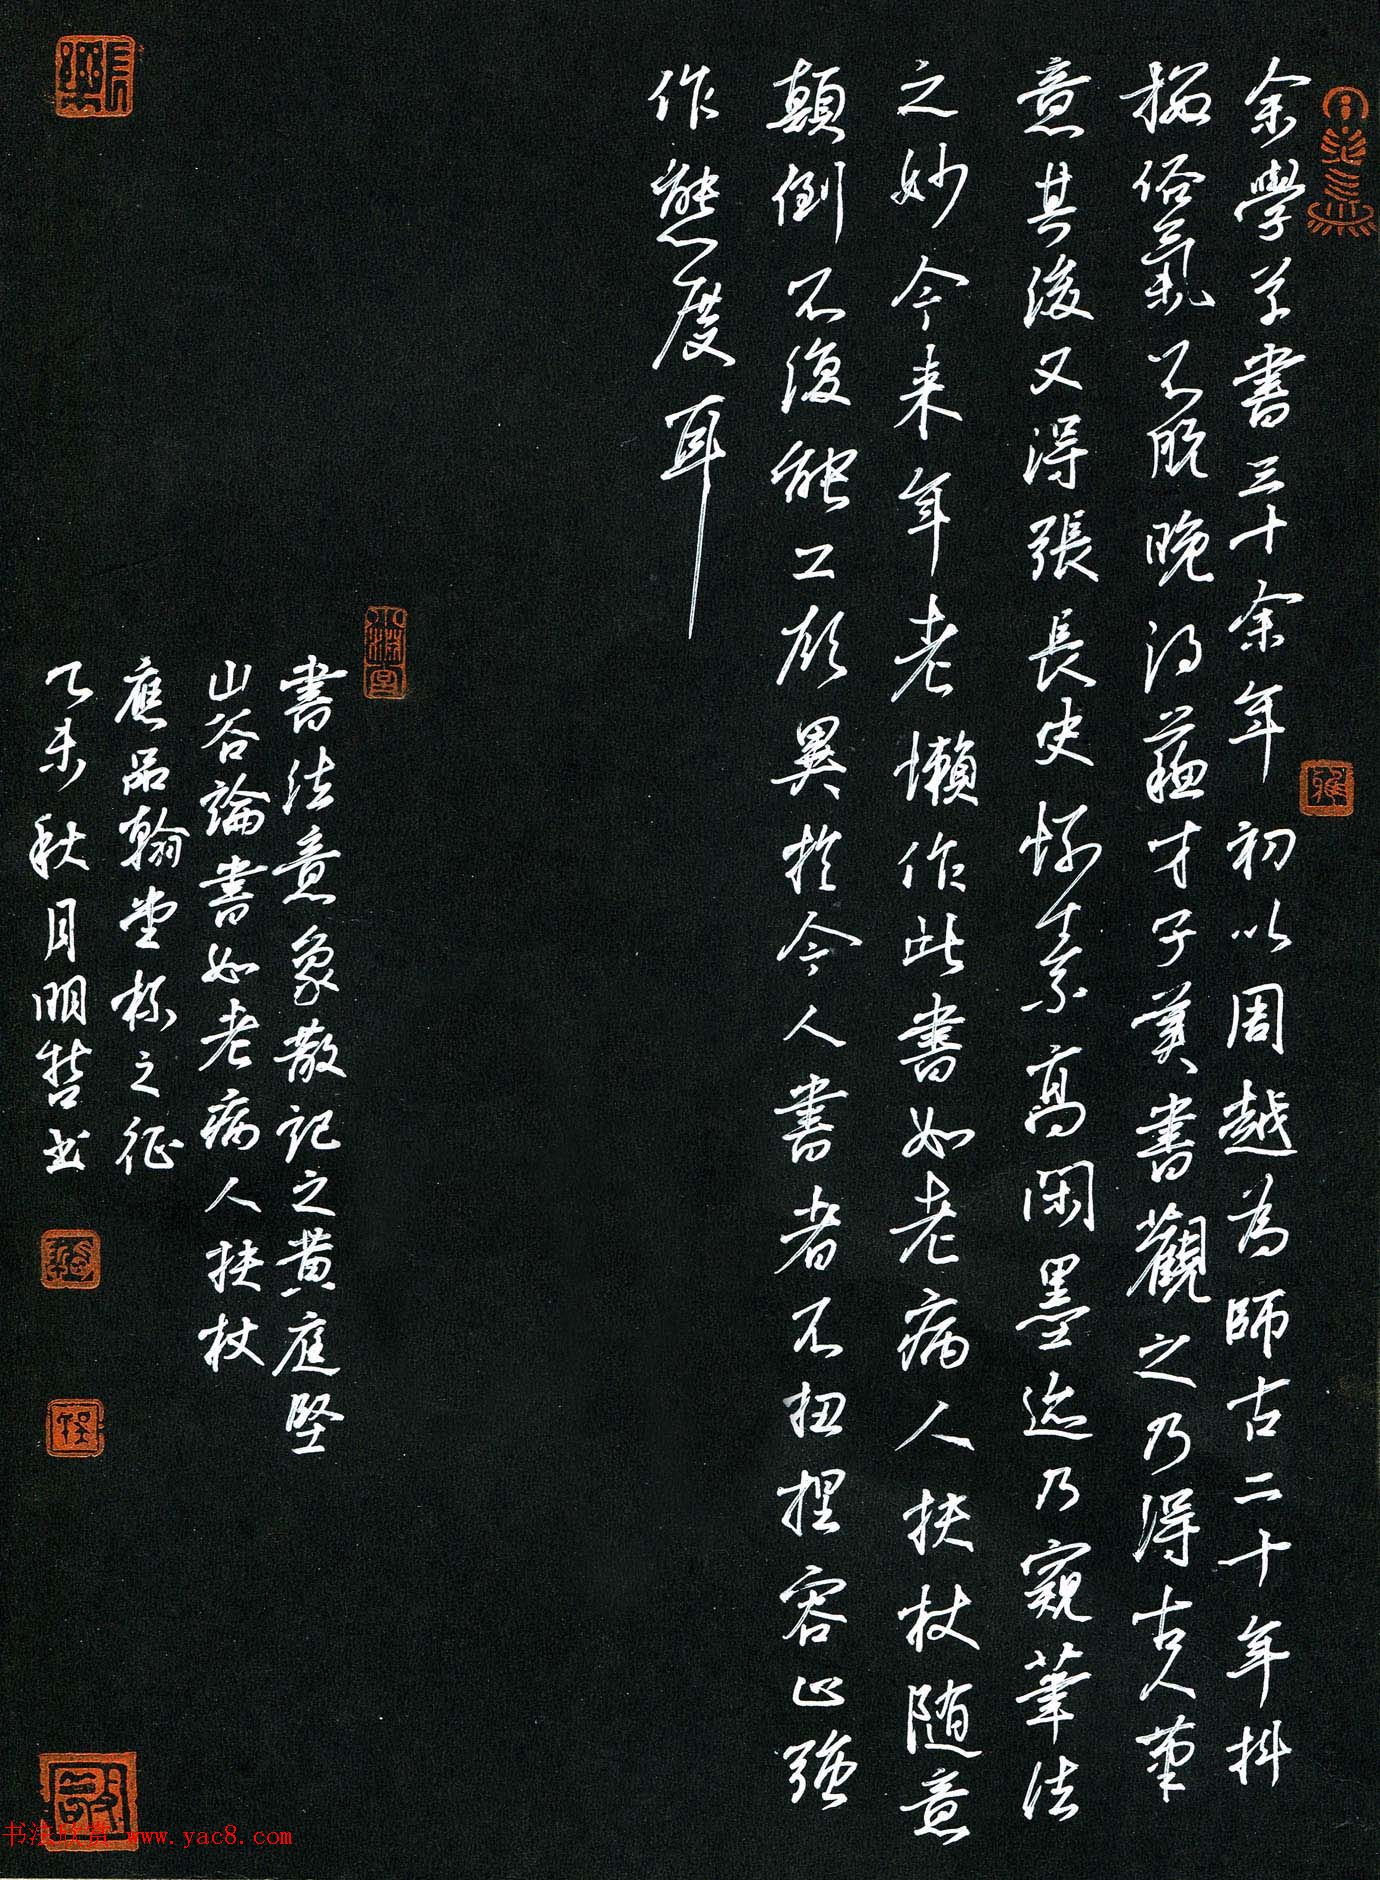 余學草書三十余年初以周越為師古二十年抖
擞俗氣不脫晚得蘇才子美書觀之乃得古人筆
意其後又得張長史懷素高閑墨迹乃窺筆法
之妙今来年老懶作此書如老病人扶杖随意
顛倒不復能工顧異於今人書者不扭捏容止強
作態度耳
書法意象散記之黄庭堅
山谷論書如老病人扶杖
應品翰堂楊之征
乙未秋月明哲書
书法欣赏 www.yac8.com